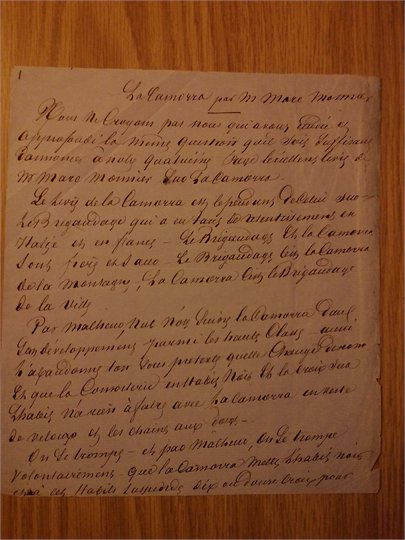 1
La Camorra par M Marc Monnier
Nous ne croyons pas nous qui avons étudié et
approfondi la même question qu'il soit suffisant
d'annoncer à nos lecteurs livre de
M Marc Monnier sur La Camorra.
Le livre de la Camorra est le pendant de celui sur
Le Brigandage qui a eu tant de retentissement en
Italie et en france – Le Brigandage et la Camorra
sont frère et sœur – Le Brigandage c'est la Camorra
de la montagne, La Camorra c'est le Brigandage
de la ville.
Par malheur, nous La Camorra dans
son développement parmi les hautes classes aussi
l'abandonne t'on sous prétexte qu'elle change de nom
et que la en habit noir et la croix sur
l'habit n'a rien à faire avec la Camorra en veste
de velours et les chaines aux
On se trompe – et par malheur, on se trompe
volontairement – que la Camorra mette l'habit noir
et à cet habit suspende dix ou douze croix pour